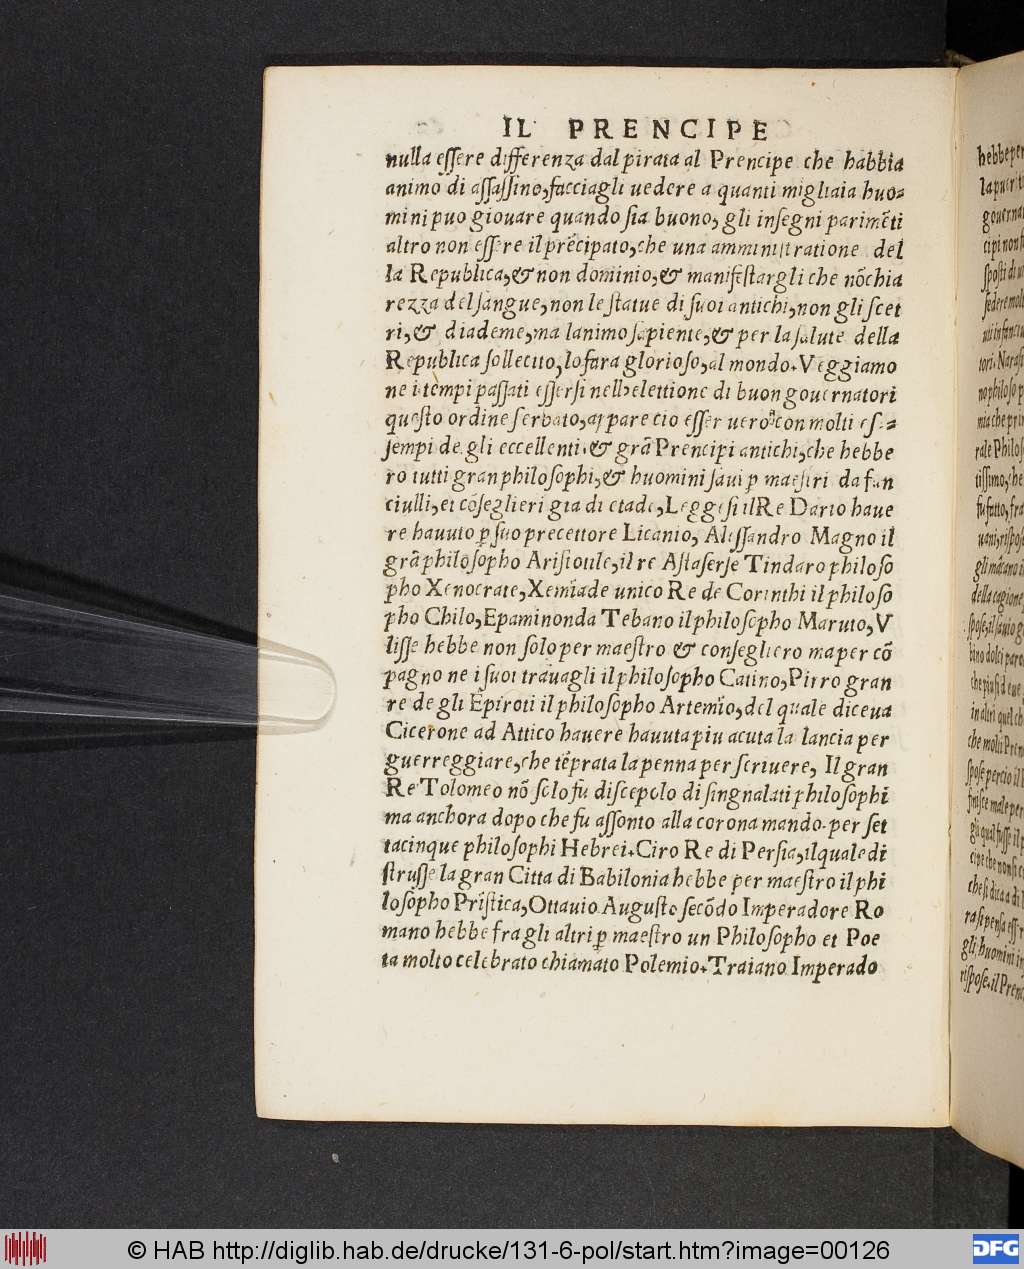 IL PRENCIPE
nulla eſſere differenza dal pirata al Prencipe che habbia
animo di aſſaſſino, facciagli uedere a quanti migliaia huo-
mini puo giouare quando ſia buono, gli inſegni parimẽti
altro non eſſere il prẽcipato, che una amminiſtratione del
la Republica, & non dominio, & manifeſtargli che nõ chia
rezza del ſangue, non le ſtatue di ſuoi antichi, non gli ſcet
ri, & diademe, ma lanimo ſapiente, & per la ſalute della
Republica ſollecito, lo fara glorioſo, al mondo. Veggiamo
ne i tempi paſſati eſſerſi nell'elettione di buon gouernatori
queſto ordine ſerbato, appare cio eſſer uero con molti eſ-
ſempi de gli eccellenti, & grã Prencipi antichi, che hebbe
ro tutti gran philoſophi, & huomini ſaui ꝑ maeſtri da fan
ciulli, et cõſeglieri gia di etade, Leggeſi il Re Dario haue
re hauuto ꝑ ſuo precettore Licanio, Aleſſandro Magno il
grã philoſopho Ariſtotile, il re Aſtaſerſe Tindaro philoſo
pho Xenocrate, Xemiade unico Re de Corinthi il philoſo
pho Chilo, Epaminonda Tebano il philoſopho Maruto, V
liſſe hebbe non ſolo per maeſtro & conſegliero ma per cõ
pagno ne i ſuoi trauagli il philoſopho Catino, Pirro gran
re de gli Epiroti il philoſopho Artemio, del quale diceua
Cicerone ad Attico hauere hauuta piu acuta la lancia per
guerreggiare, che tẽprata la penna per ſcriuere, Il gran
Re Tolomeo nõ ſolo fu diſcepolo di ſingnalati philoſophi
ma anchora dopo che fu aſſonto alla corona mando per ſet
tacinque philoſophi Hebrei. Ciro Re di Perſia, il quale di
ſtruſſe la gran Citta di Babilonia hebbe per maeſtro il phi
loſopho Priſtica, Ottauio Auguſto ſecõdo Imperadore Ro
mano hebbe fra gli altri ꝑ maeſtro un Philoſopho et Poe
ta molto celebrato chiamato Polemio. Traiano Imperado
hebbe per
gli huomini in
© HAB http://diglib.hab.de/drucke/131-6-pol/start.htm?image=00126
DFG